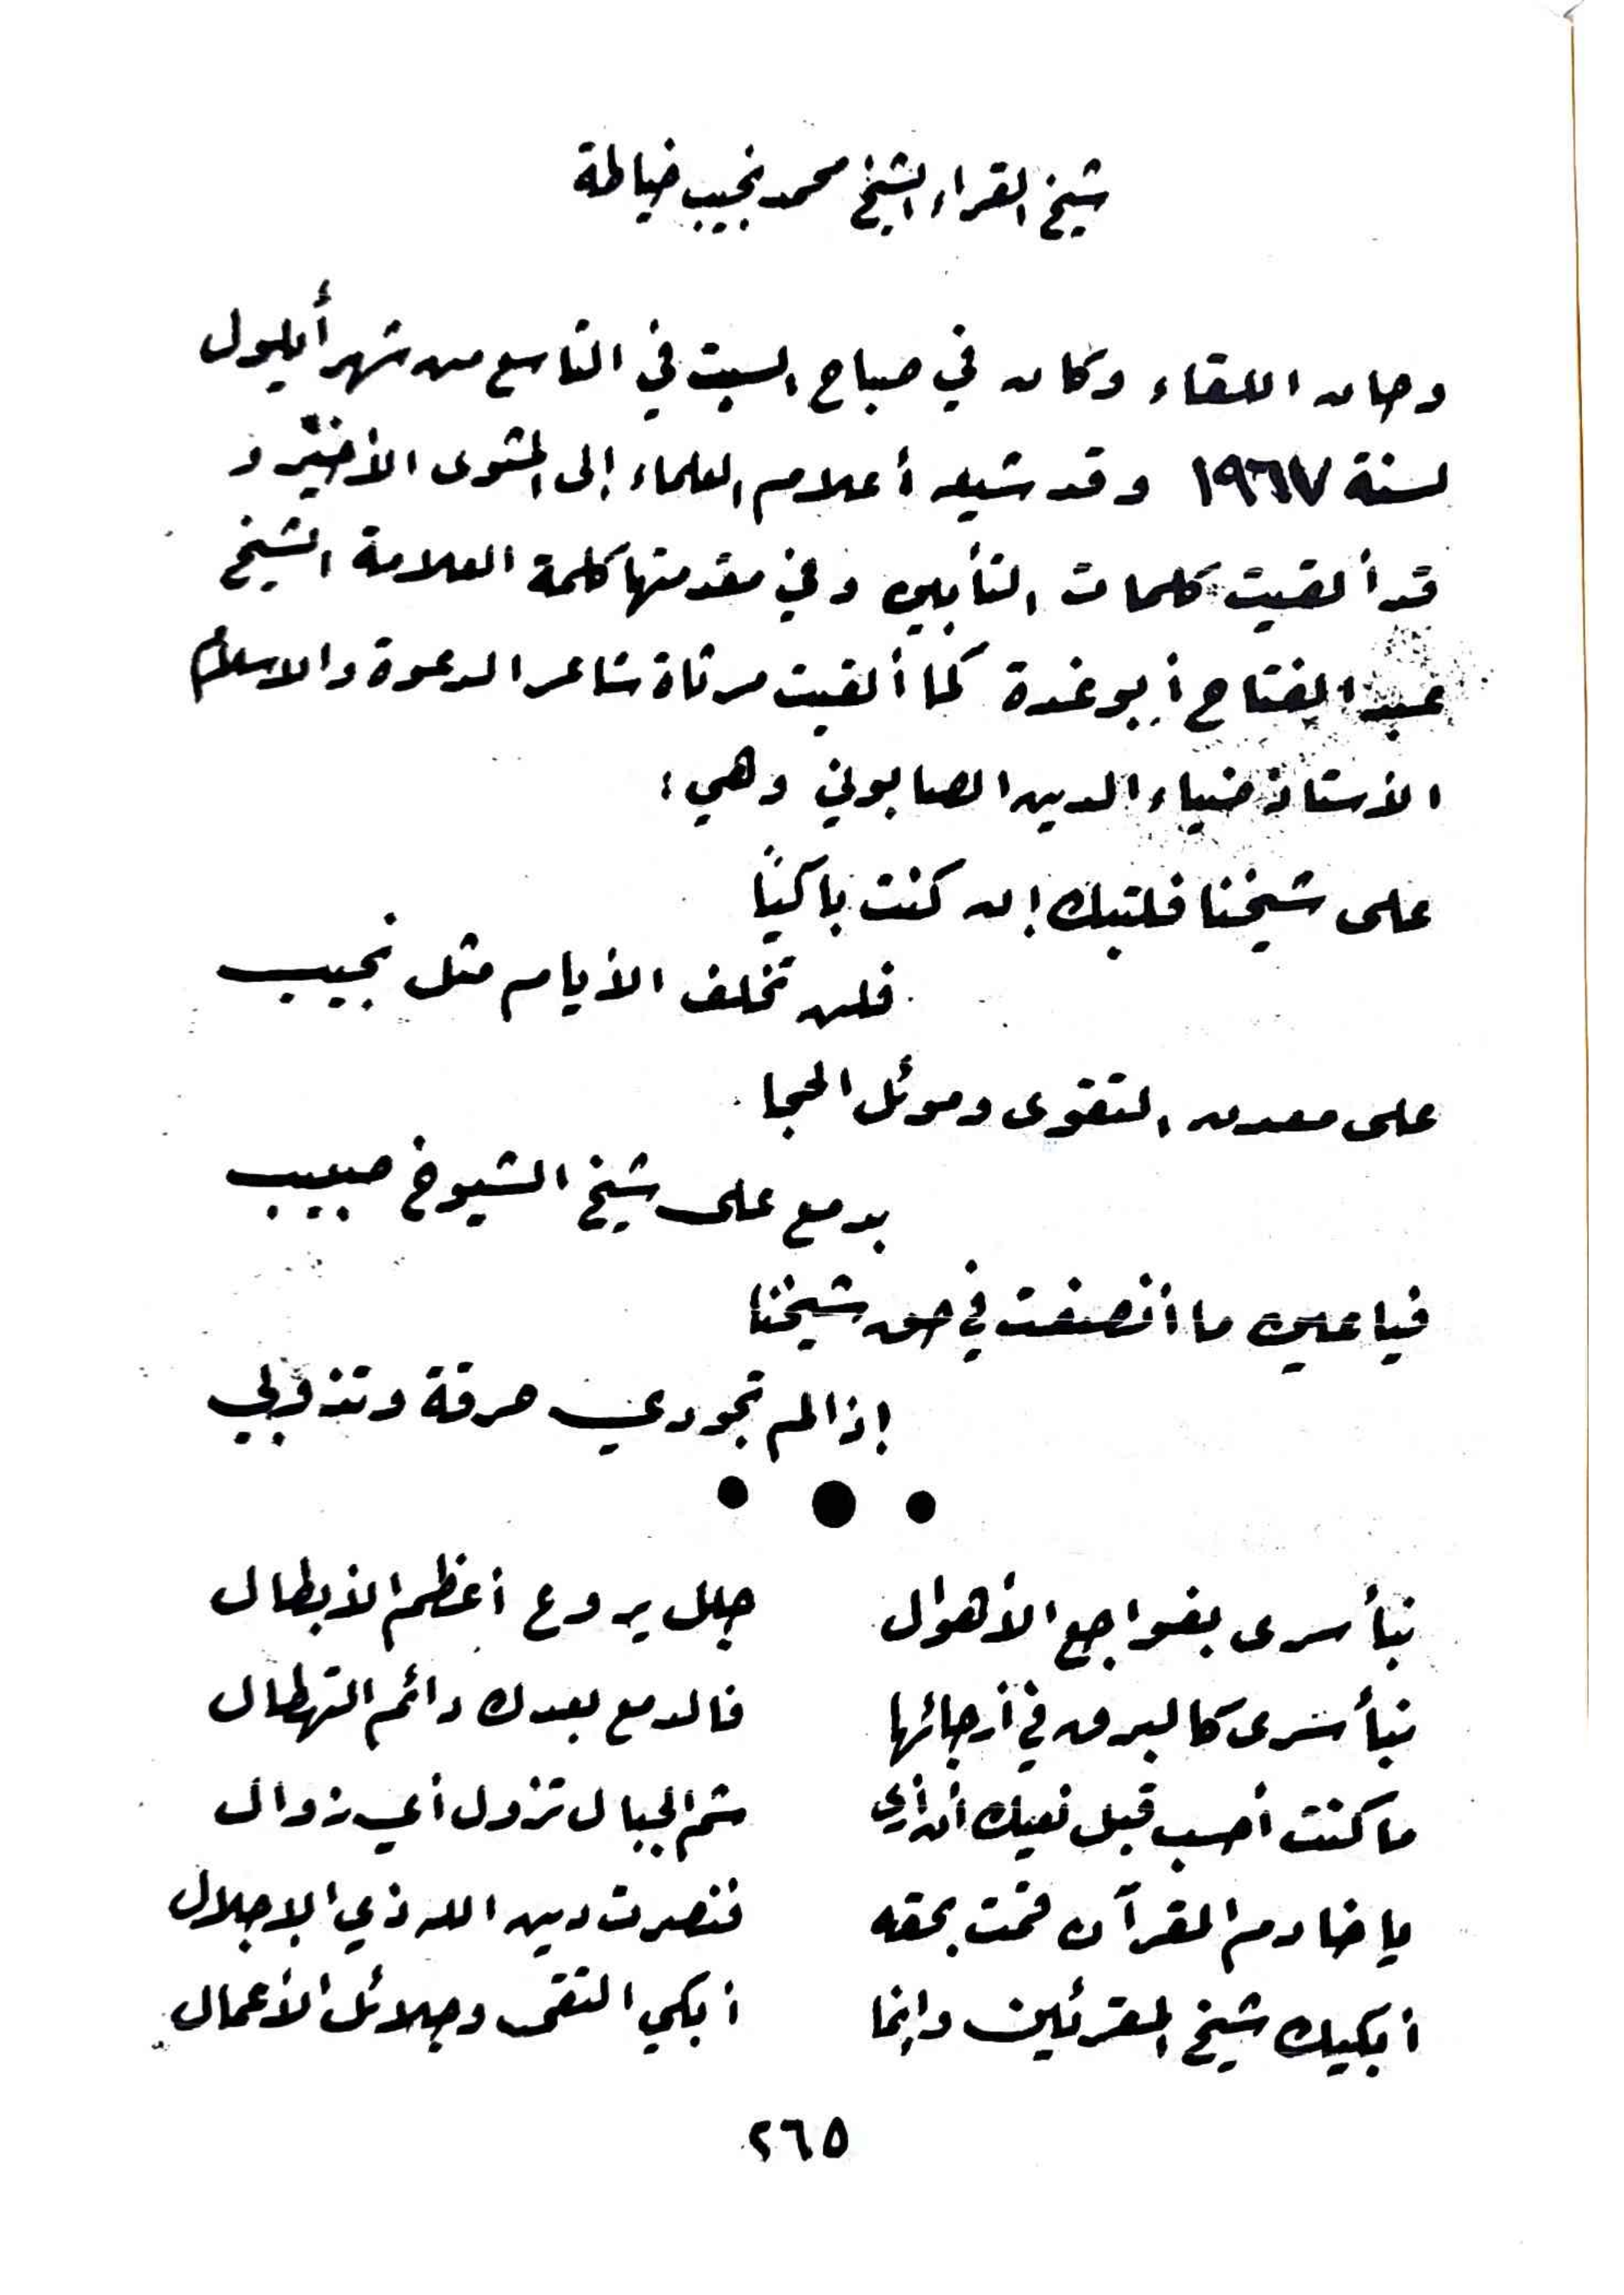 شيخ القراء الشيخ محمد نجيب خياطة
وحان اللقاء وكان في صباح السبت في التاسع من شهر أيلول
لسنة ١٩٦٧ وقد شيعه أعلام العلماء إلى المثوى الأخير و
قد ألقيت كلمات التأبين وفي مقدمتها كلمة العلامة الشيخ
عبد الفتاح أبو غدة كما ألقيت مرثاة شاعر الدعوة والاسلام
الأستاذ ضياء الدين الصابوني وهي :
على شيخنا فلتبك إن كنت باكيًا
فلن تخلف الأيام مثل نجيب
على معدن التقوى وموئل الحجا
بدمع على شيخ الشيوخ صبيب
فيا عين ما أنصفت في حق شيخنا
إذا لم تجودي حرقة وتذوبي
نبأ سرى بفواجع الأهوال جلل يروع أعظم الأبطال
نبأ سرى كالبرق في أرجائها فالدمع بعدك دائم التهطال
ما كنت أحسب قبل نعيك أن أرى شم الجبال تزول أي زوال
يا خادم القرآن قمت بحقه فنصرت دين الله ذي الإجلال
أبكيك شيخ المقرئين وإنما أبكي التقى وجلائل الأعمال
٢٦٥